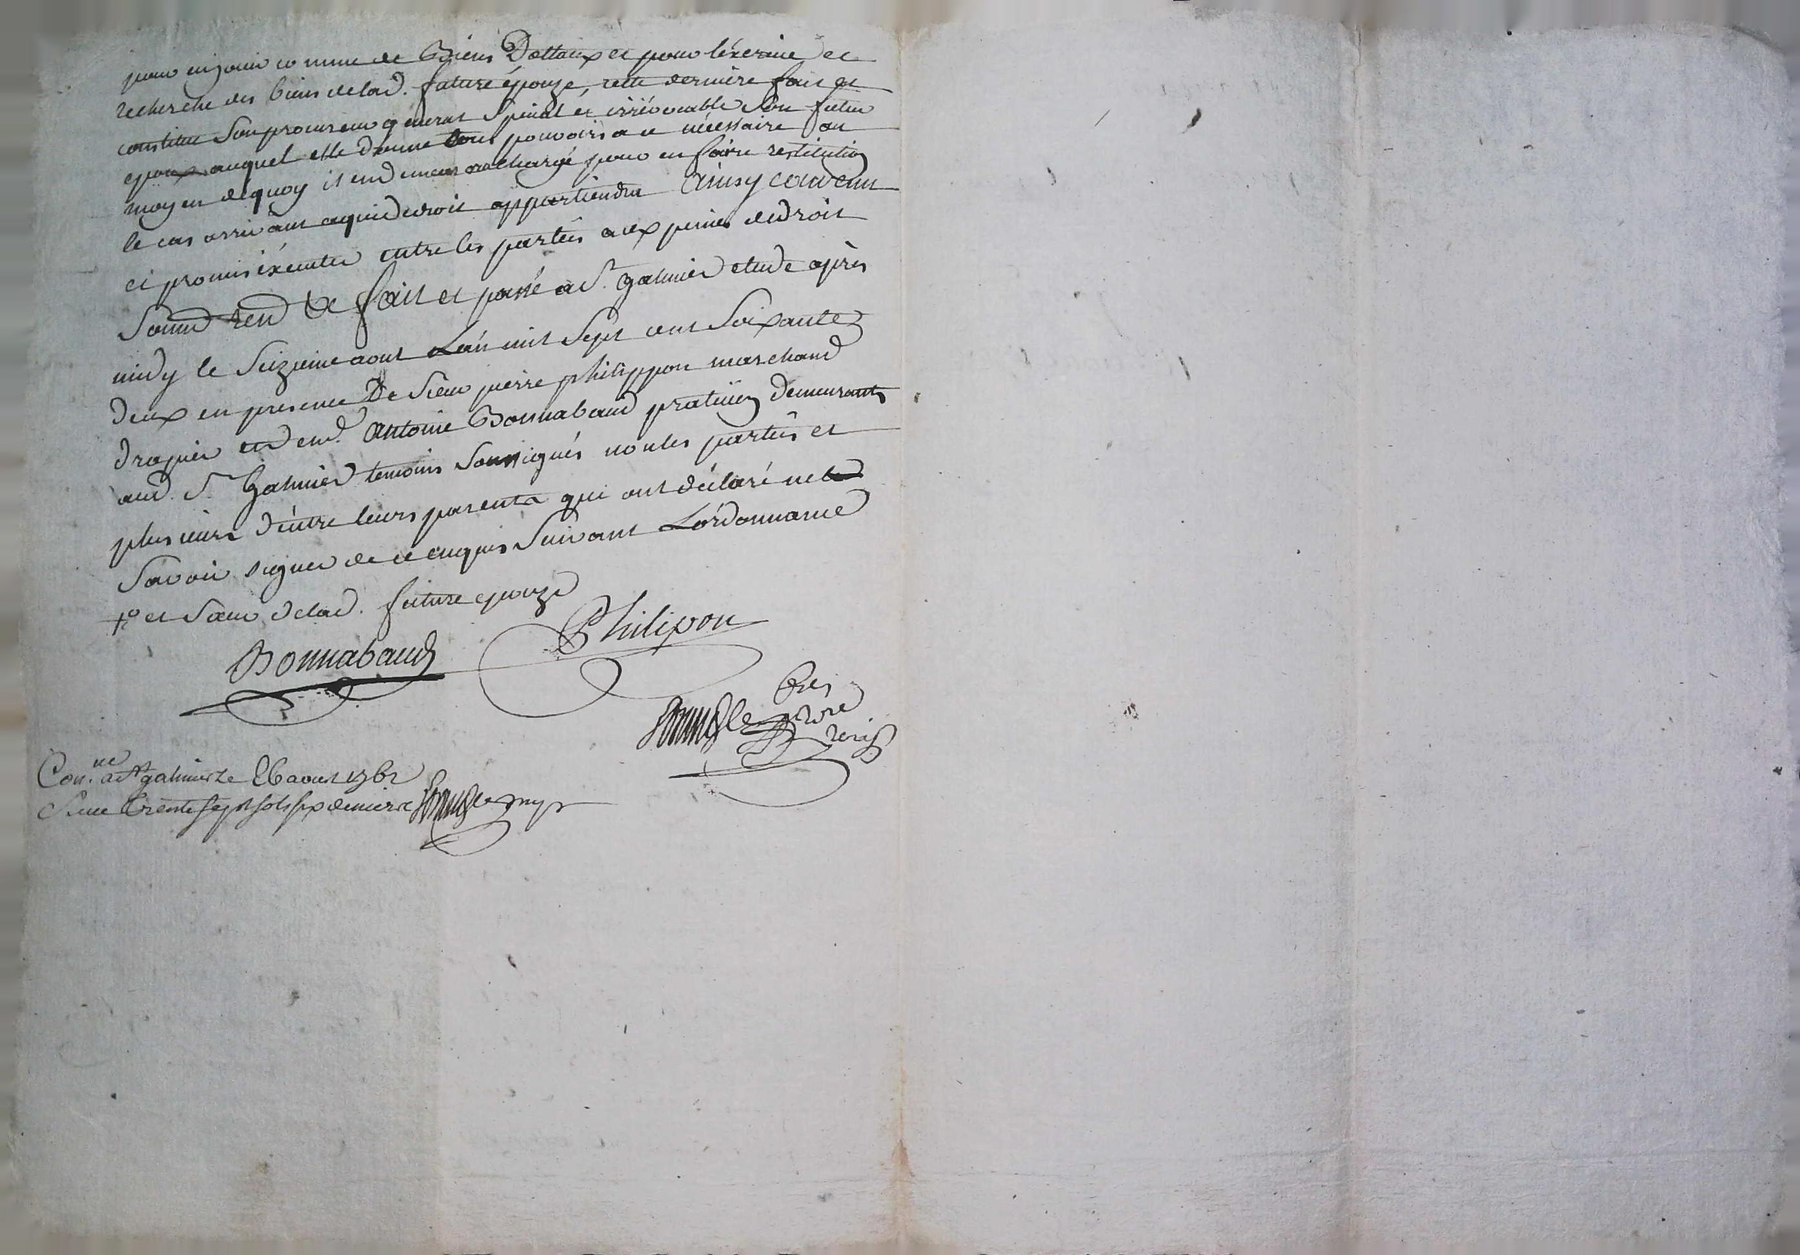 pour en jouir comme de Biens Dottaux et pour léxercice et
recherche des biens delad. future épouze, cette dernière fait et
constitue Son procureur general Special et irrévocable Son futur
epoux auquel elle donne tous pouvoirs a ce nécessaire au
moyen dequoy il en demeurera chargé pour en faire restitution
le cas arrivant aquidedroit appartiendra Ainsy convenu
et promis éxécuter entre les parties aux peines dedroit
Soumd. Rend. &c fait et passé a St. galmier etude après
midy le Seizieme aout Lan mil Sept cent Soixante
deux en presence De Sieur pierre philippon marchand
drapier et de me. Antoine Bonnabaud praticien demeurants
aud. St. Galmier temoins Soussignés non les parties et
plusieurs d'entre leurs parents qui ont déclaré ne
Savoir signer de ce enquis Suivant Lordonnance
+° et Sœur delad. future epouze
Bonnabaud
Philipon
Conné. a St galmier le 26 aout 1762
Reçu trente sept sols six deniers